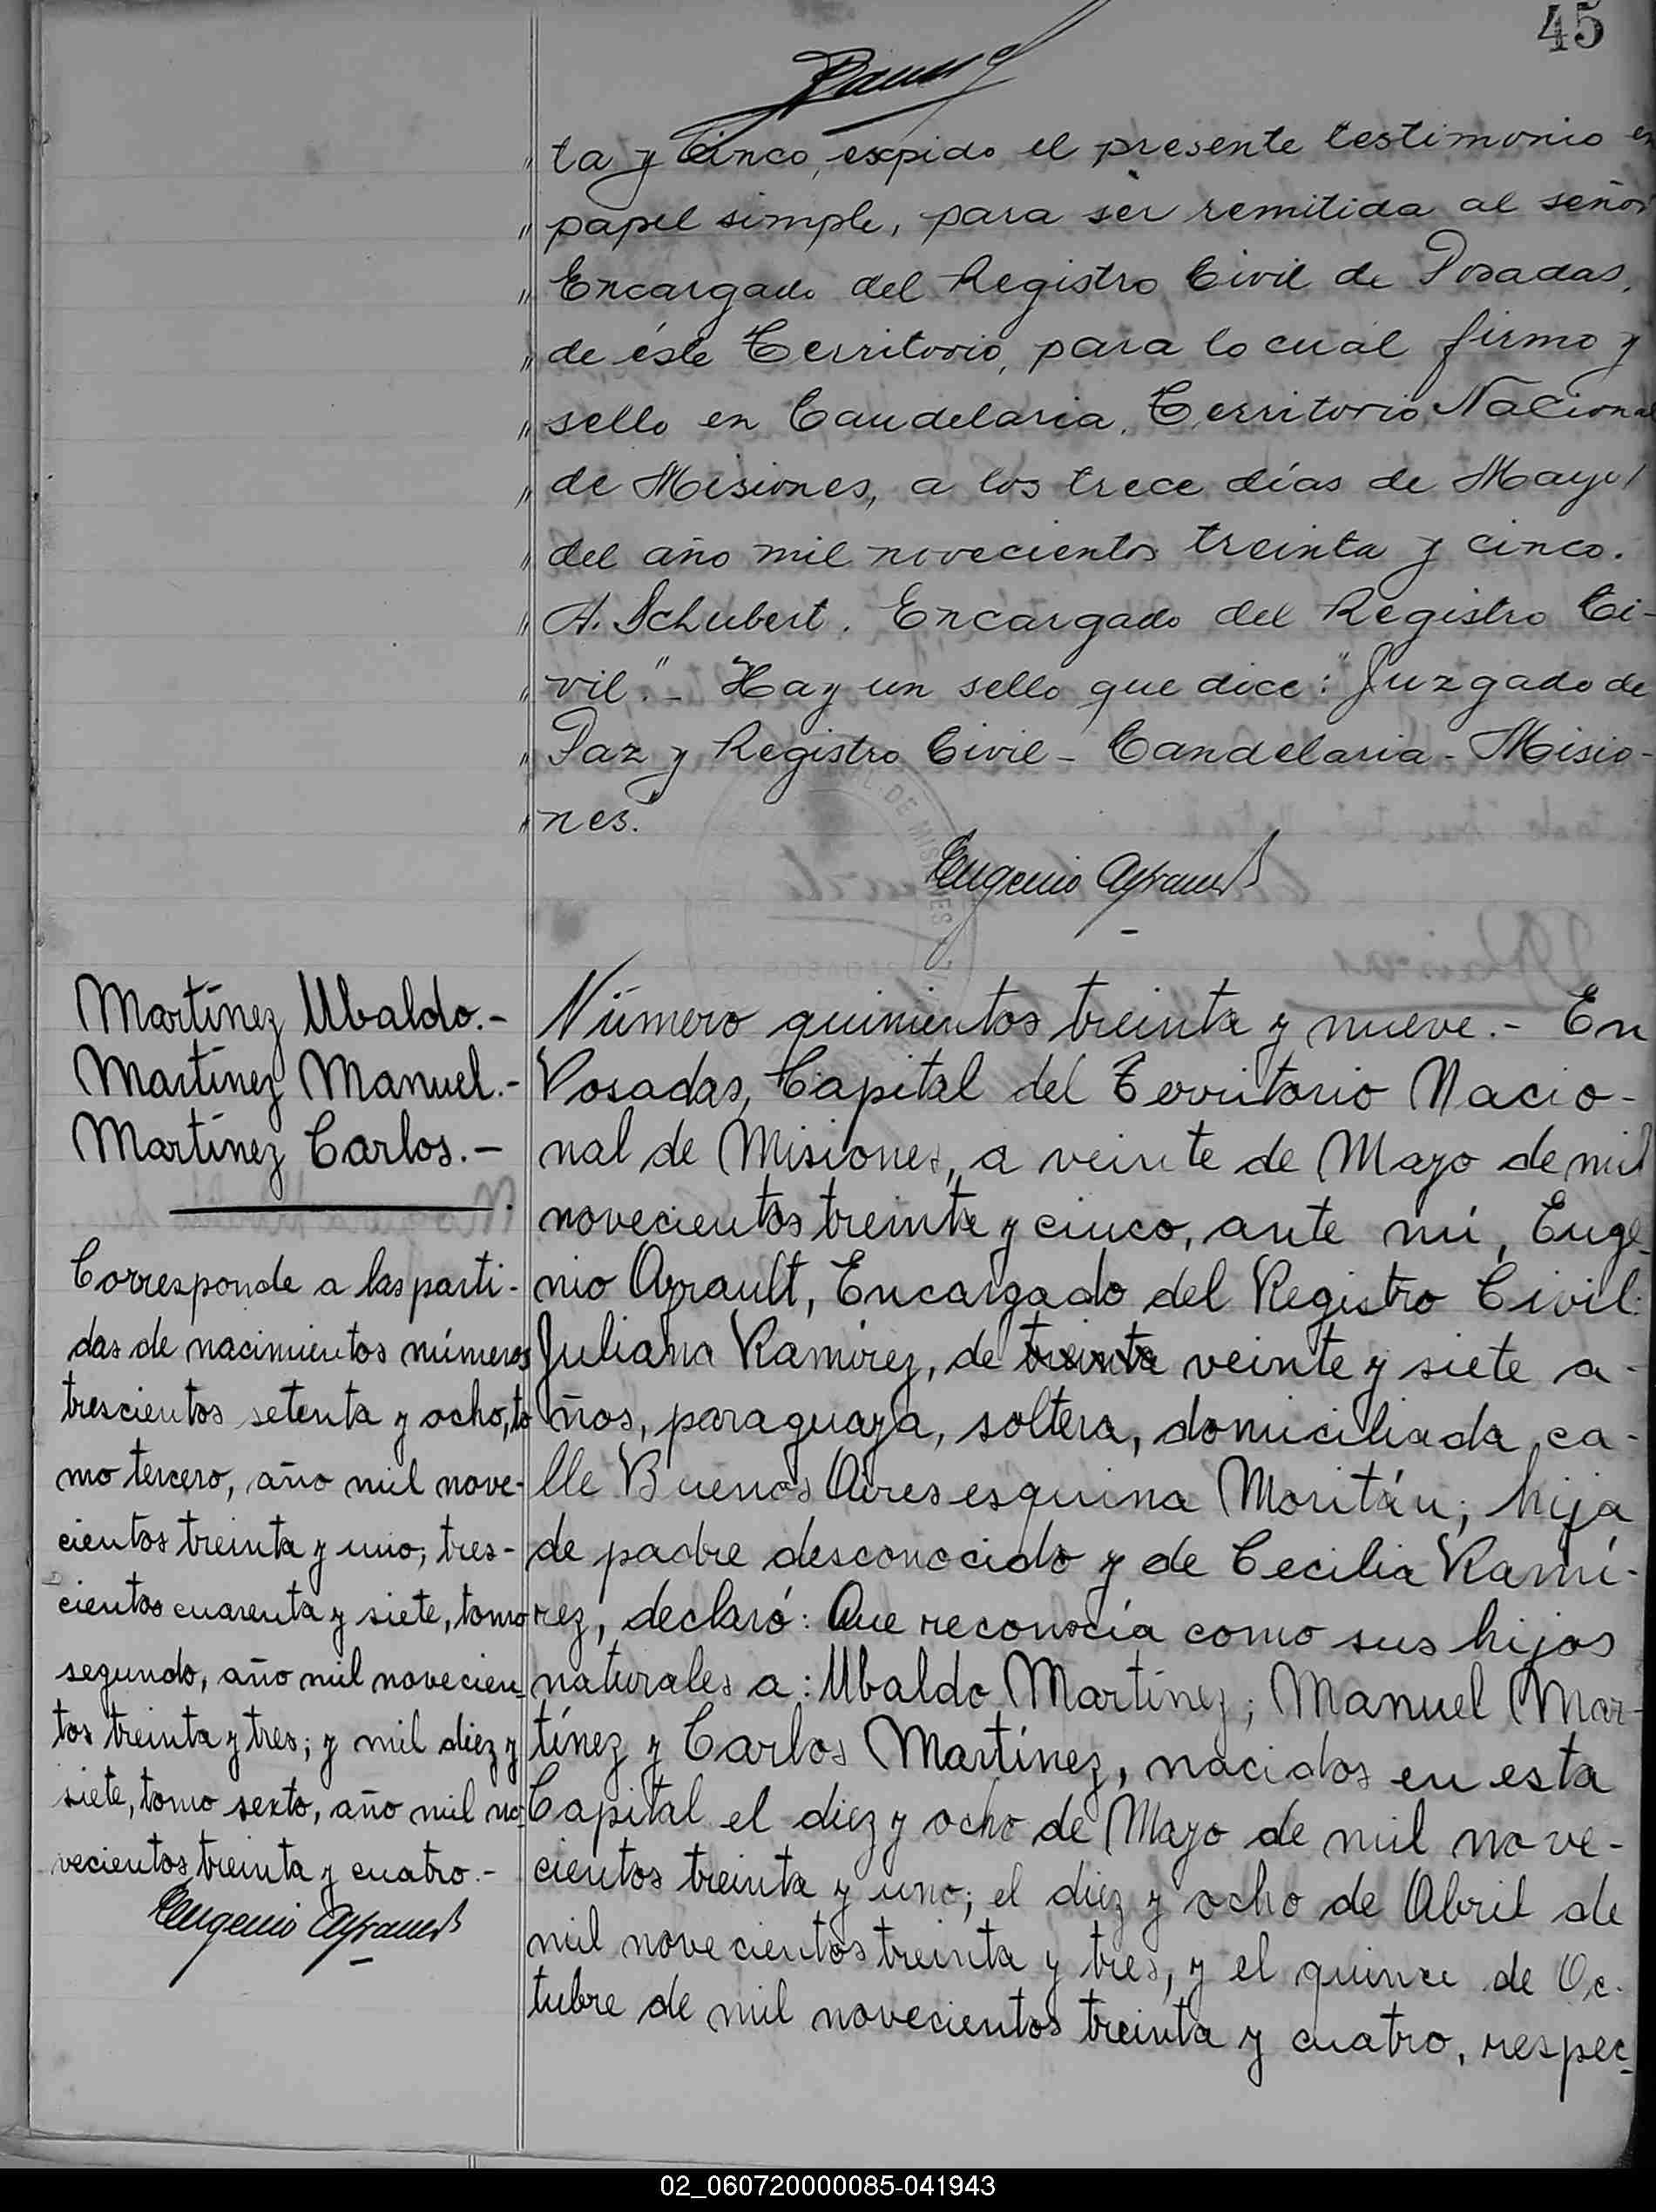 45
ta y cinco, expido el presente testimonio en
" papel simple, para ser remitida al señor
" Encargado del Registro Civil de Posadas,
" de éste Territorio, para lo cuál firmo y
" sello en Candelaria, Territorio Nacional
" de Misiones, a los trece días de Mayo
" del año mil novecientos treinta y cinco.
" A. Schubert. Encargado del Registro Ci-
" vil."- Hay un sello que dice: "Juzgado de
" Paz y Registro Civil - Candelaria - Misio-
" nes."
Martínez Ubaldo.-
Martínez Manuel.-
Martínez Carlos.-
Corresponde a las parti-
das de nacimientos números
trescientos setenta y ocho, to
mo tercero, año mil nove-
cientos treinta y uno; tres-
cientos cuarenta y siete, tomo
segundo, año mil novecien-
tos treinta y tres; y mil diez y
siete, tomo sexto, año mil no-
vecientos treinta y cuatro.-
Número quinientos treinta y nueve.- En
Posadas, Capital del Territorio Nacio-
nal de Misiones, a veinte de Mayo de mil
novecientos treinta y cinco, ante mí, Euge-
nio Ayrault, Encargado del Registro Civil:
Juliana Ramírez, de treinta veinte y siete a-
ños, paraguaya, soltera, domiciliada, ca-
lle Buenos Aires esquina Moritán; hija
de padre desconocido y de Cecilia Ramí-
rez, declaró: Que reconocía como sus hijos
naturales a: Ubaldo Martínez; Manuel Mar-
tínez y Carlos Martínez, nacidos en esta
Capital el diez y ocho de Mayo de mil nove-
cientos treinta y uno; el diez y ocho de Abril de
mil novecientos treinta y tres, y el quince de Oc-
tubre de mil novecientos treinta y cuatro, respec-
02_060720000085-041943